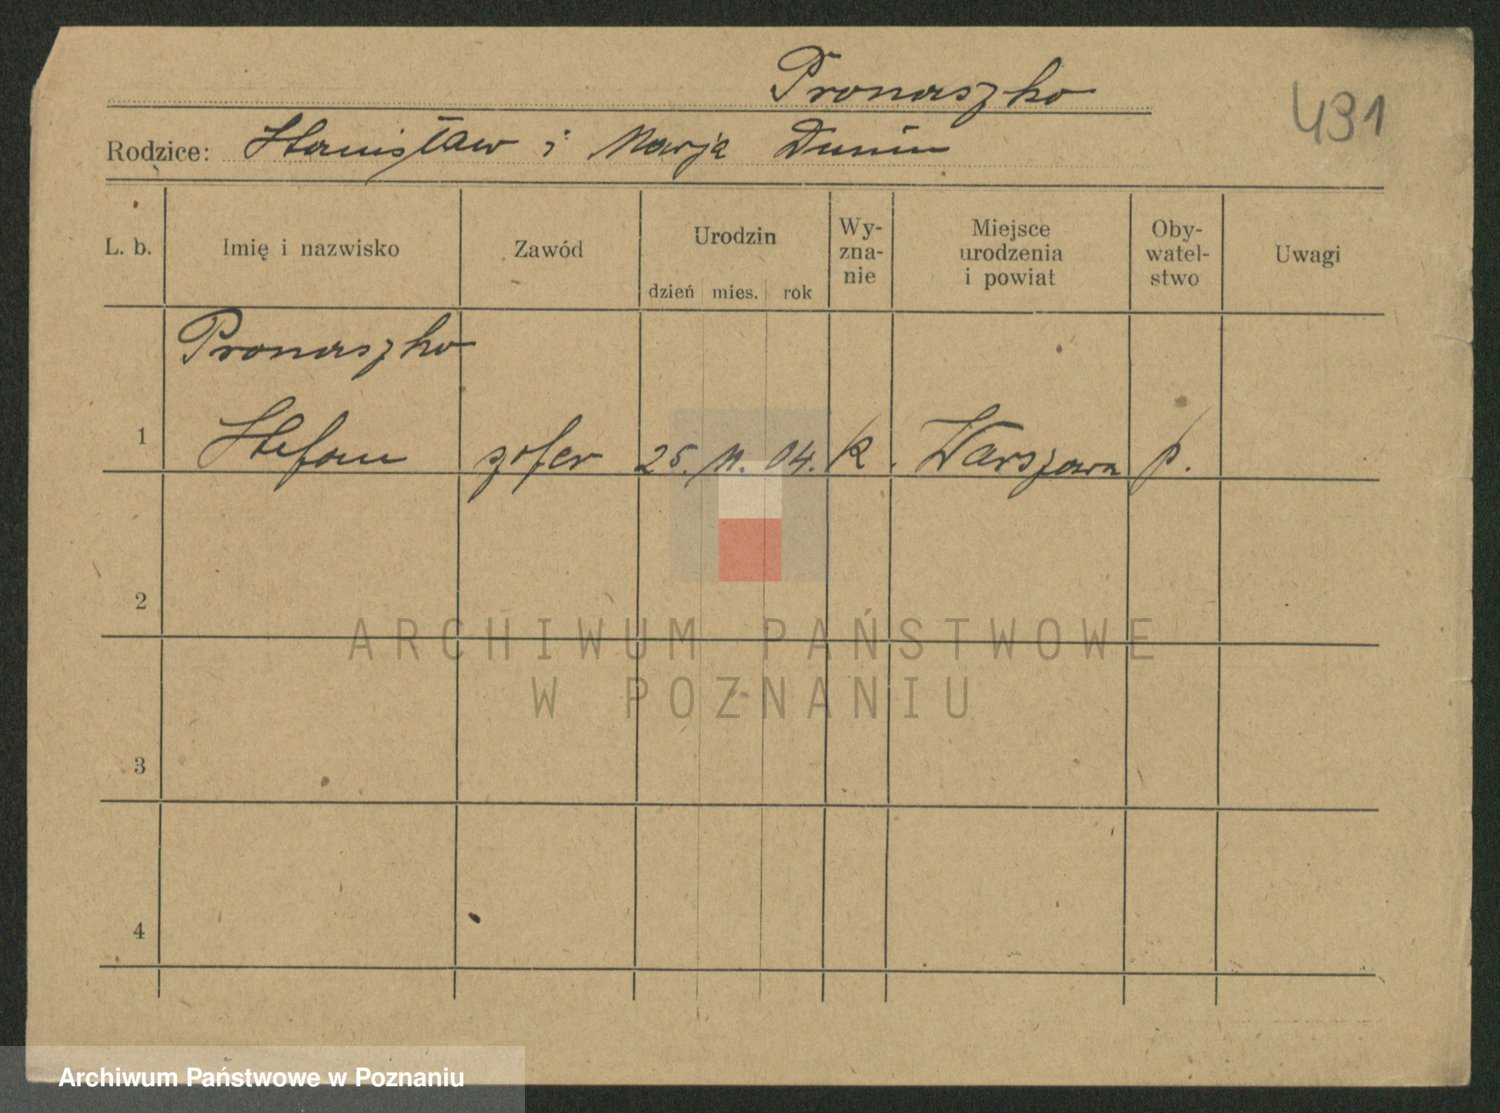 Pronaszko
431
Rodzice: Stanisław i Marja Dunin
L. b. Imię i nazwisko Zawód Urodzin dzień mies. rok Wy-zna-nie Miejsce urodzenia i powiat Oby-watel-stwo Uwagi
Pronaszko
1 Stefan szofer 25. 11. 04. k. Warszawa p.
2
ARCHIWUM PAŃSTWOWE
W POZNANIU
3
4
Archiwum Państwowe w Poznaniu